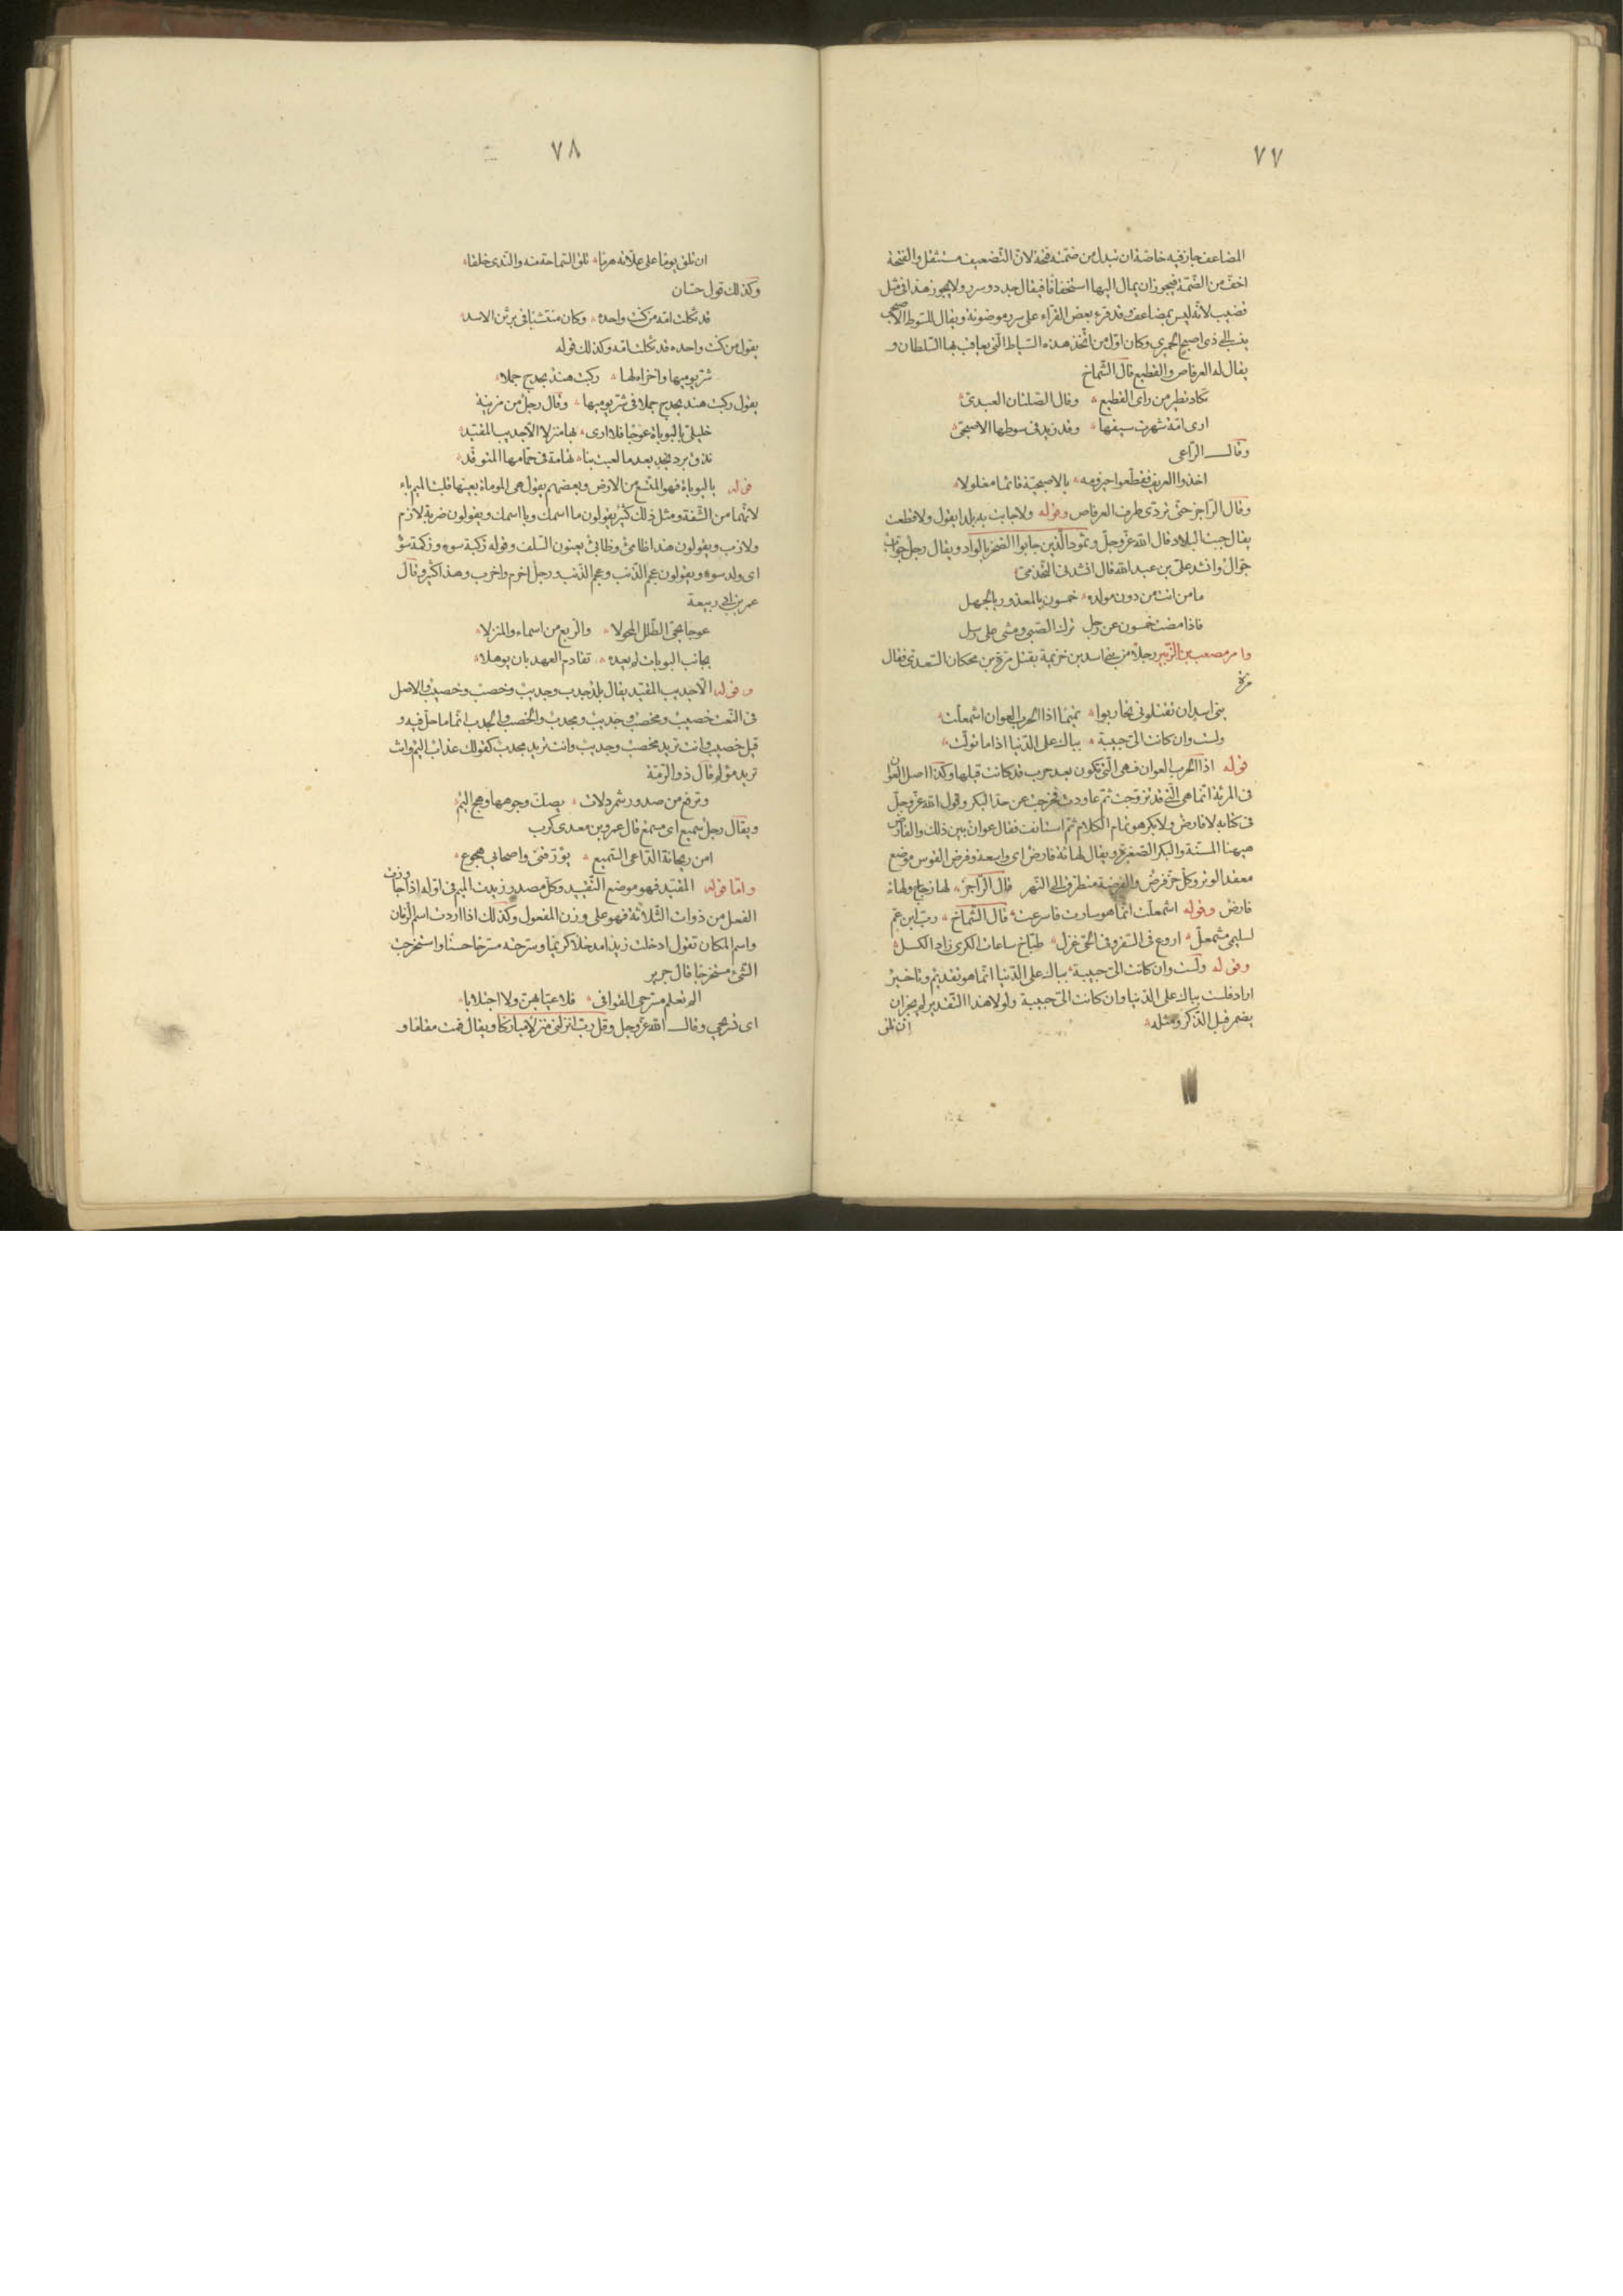 ٧٧
المضاعف جاز فيه خاصة ان تبدل من ضمته فتحة لان التضعيف مستثقل والفتحة
اخف من الضمة فيجوز ان يمال اليها استخفافا فيقال جدد وسرر ولا يجوز هذا فى مثل
قضيب لانه ليس بمضاعف وقد قرء بعض القراء على سرر موضونة ويقال للسوط الاصبحى
ينسب الى ذى اصبح الحميرى وكان اول من اتخذ هذه السياط التى يعاقب بها السلطان و
يقال له العرفاص والقطيع قال الشماخ
تكاد تطير من راى القطيع وقال الصلتان العبدى
ارى امة شهرت سيفها وقد زيد فى سوطها الاصبحى
وقال الراعى
اخذوا العريف فقطعوا حيزومه بالاصبحية قائما مغلولا
وقال الراجز حتى تردى طرف العرفاص وقوله ولا جابت به بلدا يقول ولا قطعت
يقال جبت البلاد قال الله عز وجل وثمود الذين جابوا الصخر بالواد ويقال رجل جواب
جوال وانشد على بن عبد الله قال انشدنى القحذمى
ما من اتت من دون مولده خمسون بالمعذور بالجهل
فاذا مضت خمسون عن رجل ترك الصبى ومشى على رسل
وامر مصعب بن الزبير رجلا من بنى اسد بن خزيمة بقتل مرة بن محكان السعدى فقال
مرة
بنى اسد ان تقتلونى تحاربوا تميما اذا الحرب العوان اشمعلت
ولست وان كانت الى حبيبة بباك على الدنيا اذا ما تولت
قوله اذا الحرب العوان فهى التى تكون بعد حرب قد كانت قبلها وكذا اصل العوان
فى المرئة انما هى التى قد تزوجت ثم عاودت فخرجت عن حد البكر وقول الله عز وجل
فى كتابه لا فارض ولا بكر هو تمام الكلام ثم استانفت فقال عوان بين ذلك والفارض
ههنا المسنة والبكر الصغيرة ويقال لهاة فارض اى واسعة وفرض القوس موضع
معقد الوتر وكل حز فرض والفرضة متطرق الى النهر قال الراجز لها زجاج ولهاة
فارض وقوله اشمعلت انما هو سارت فاسرعت قال الشماخ رب ابن عم
لسليمى مشمعل اروع فى السفر وفى الحى غزل طباخ ساعات الكرى زاد الكسل
وقوله ولست وان كانت الى حبيبة بباك على الدنيا انما هو تقديم وتاخير
اراد فلست بباك على الدنيا وان كانت الى حبيبة ولولا هذا التقدير لم يجز ان
يضمر قبل الذكر ومثله
ان تلق
٧٨
ان تلق يوما على علاته هرما تلق السماحة منه والندى خلقا
وكذلك قول حسان
قد ثكلت امه من كنت واحده وكان منتشبا فى برثن الاسد
يقول من كنت واحده قد ثكلت امه وكذلك قوله
شر يوميها واخزاه لها ركبت هند بحدج جملا
يقول ركبت هند بحدج جملا فى شر يوميها وقال رجل من مزينة
خليلى بالبوباة عوجا فلا ارى بها منزلا الا جديب المقيد
نذق برد نجد بعد ما لعبت بنا تهامة فى حمامها المتوقد
قوله بالبوباة فهو المتسع من الارض وبعضهم يقول هى الموماة بعينها قلبت الميم باء
لانهما من الشفة ومثل ذلك كثير يقولون ما اسمك وبا اسمك ويقولون ضربة لازم
ولازب ويقولون هذا ظامى وظابى يعنون السلف وقوله زكبة سوء وزكمة سوء
اى ولد سوء ويقولون عجم الذنب وعجب الذنب ورجل اخرم واخرب وهذا كثير وقال
عمر بن ابى ربيعة
عوجا نحى الطلل المحولا والربع من اسماء والمنزلا
بجانب البوبات لم يعده تقادم العهد بان يوهلا
وقوله الا جديب المقيد يقال بلد جدب وجديب وخصب وخصيب والاصل
فى النعت خصيب ومخصب وجديب ومجدب والخصب والجدب انما ما حل فيه و
قيل خصيب وانت تريد مخصب وجديب وانت تريد مجدب كقولك عذاب اليم وانت
تريد مؤلم قال ذو الرمة
ونرفع من صدور شمردلات يصك وجوهها وهج اليم
ويقال رجل سميع اى مسمع قال عمرو بن معدى كرب
امن ريحانة الداعى السميع يؤرقنى واصحابى هجوع
واما قوله المقيد فهو موضع التقييد وكل مصدر زيدت الميم فى اوله اذا جاوزت
الفعل من ذوات الثلاثة فهو على وزن المفعول وكذلك اذا اردت اسم الزمان
واسم المكان تقول ادخلت زيدا مدخلا كريما وسرحته مسرحا حسنا واستخرجت
الشىء مستخرجا قال جرير
الم تعلم مسرحى القوافى فلا عيا بهن ولا اجتلابا
اى تسريحى وقال الله عز وجل وقل رب انزلنى منزلا مباركا ويقال قمت مقاما و